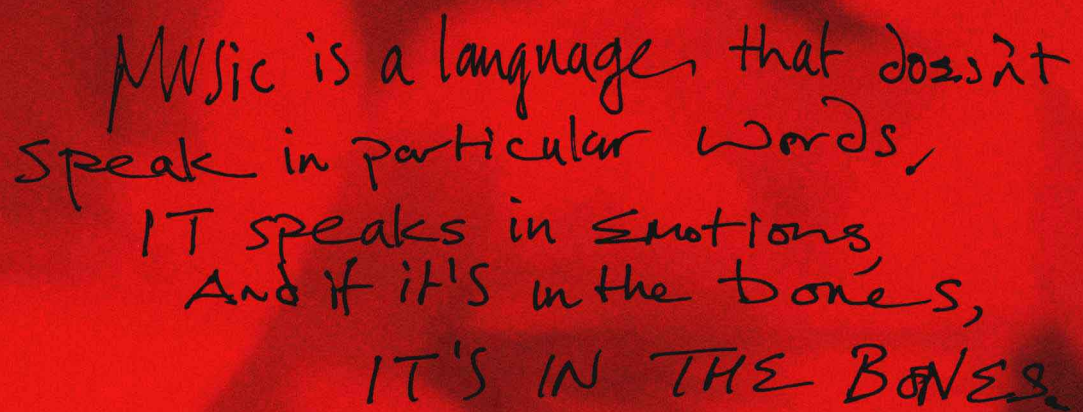 Music is a language that doesn't
speak in particular words,
IT speaks in Emotions,
And if it's in the bones,
IT'S IN THE BONES.